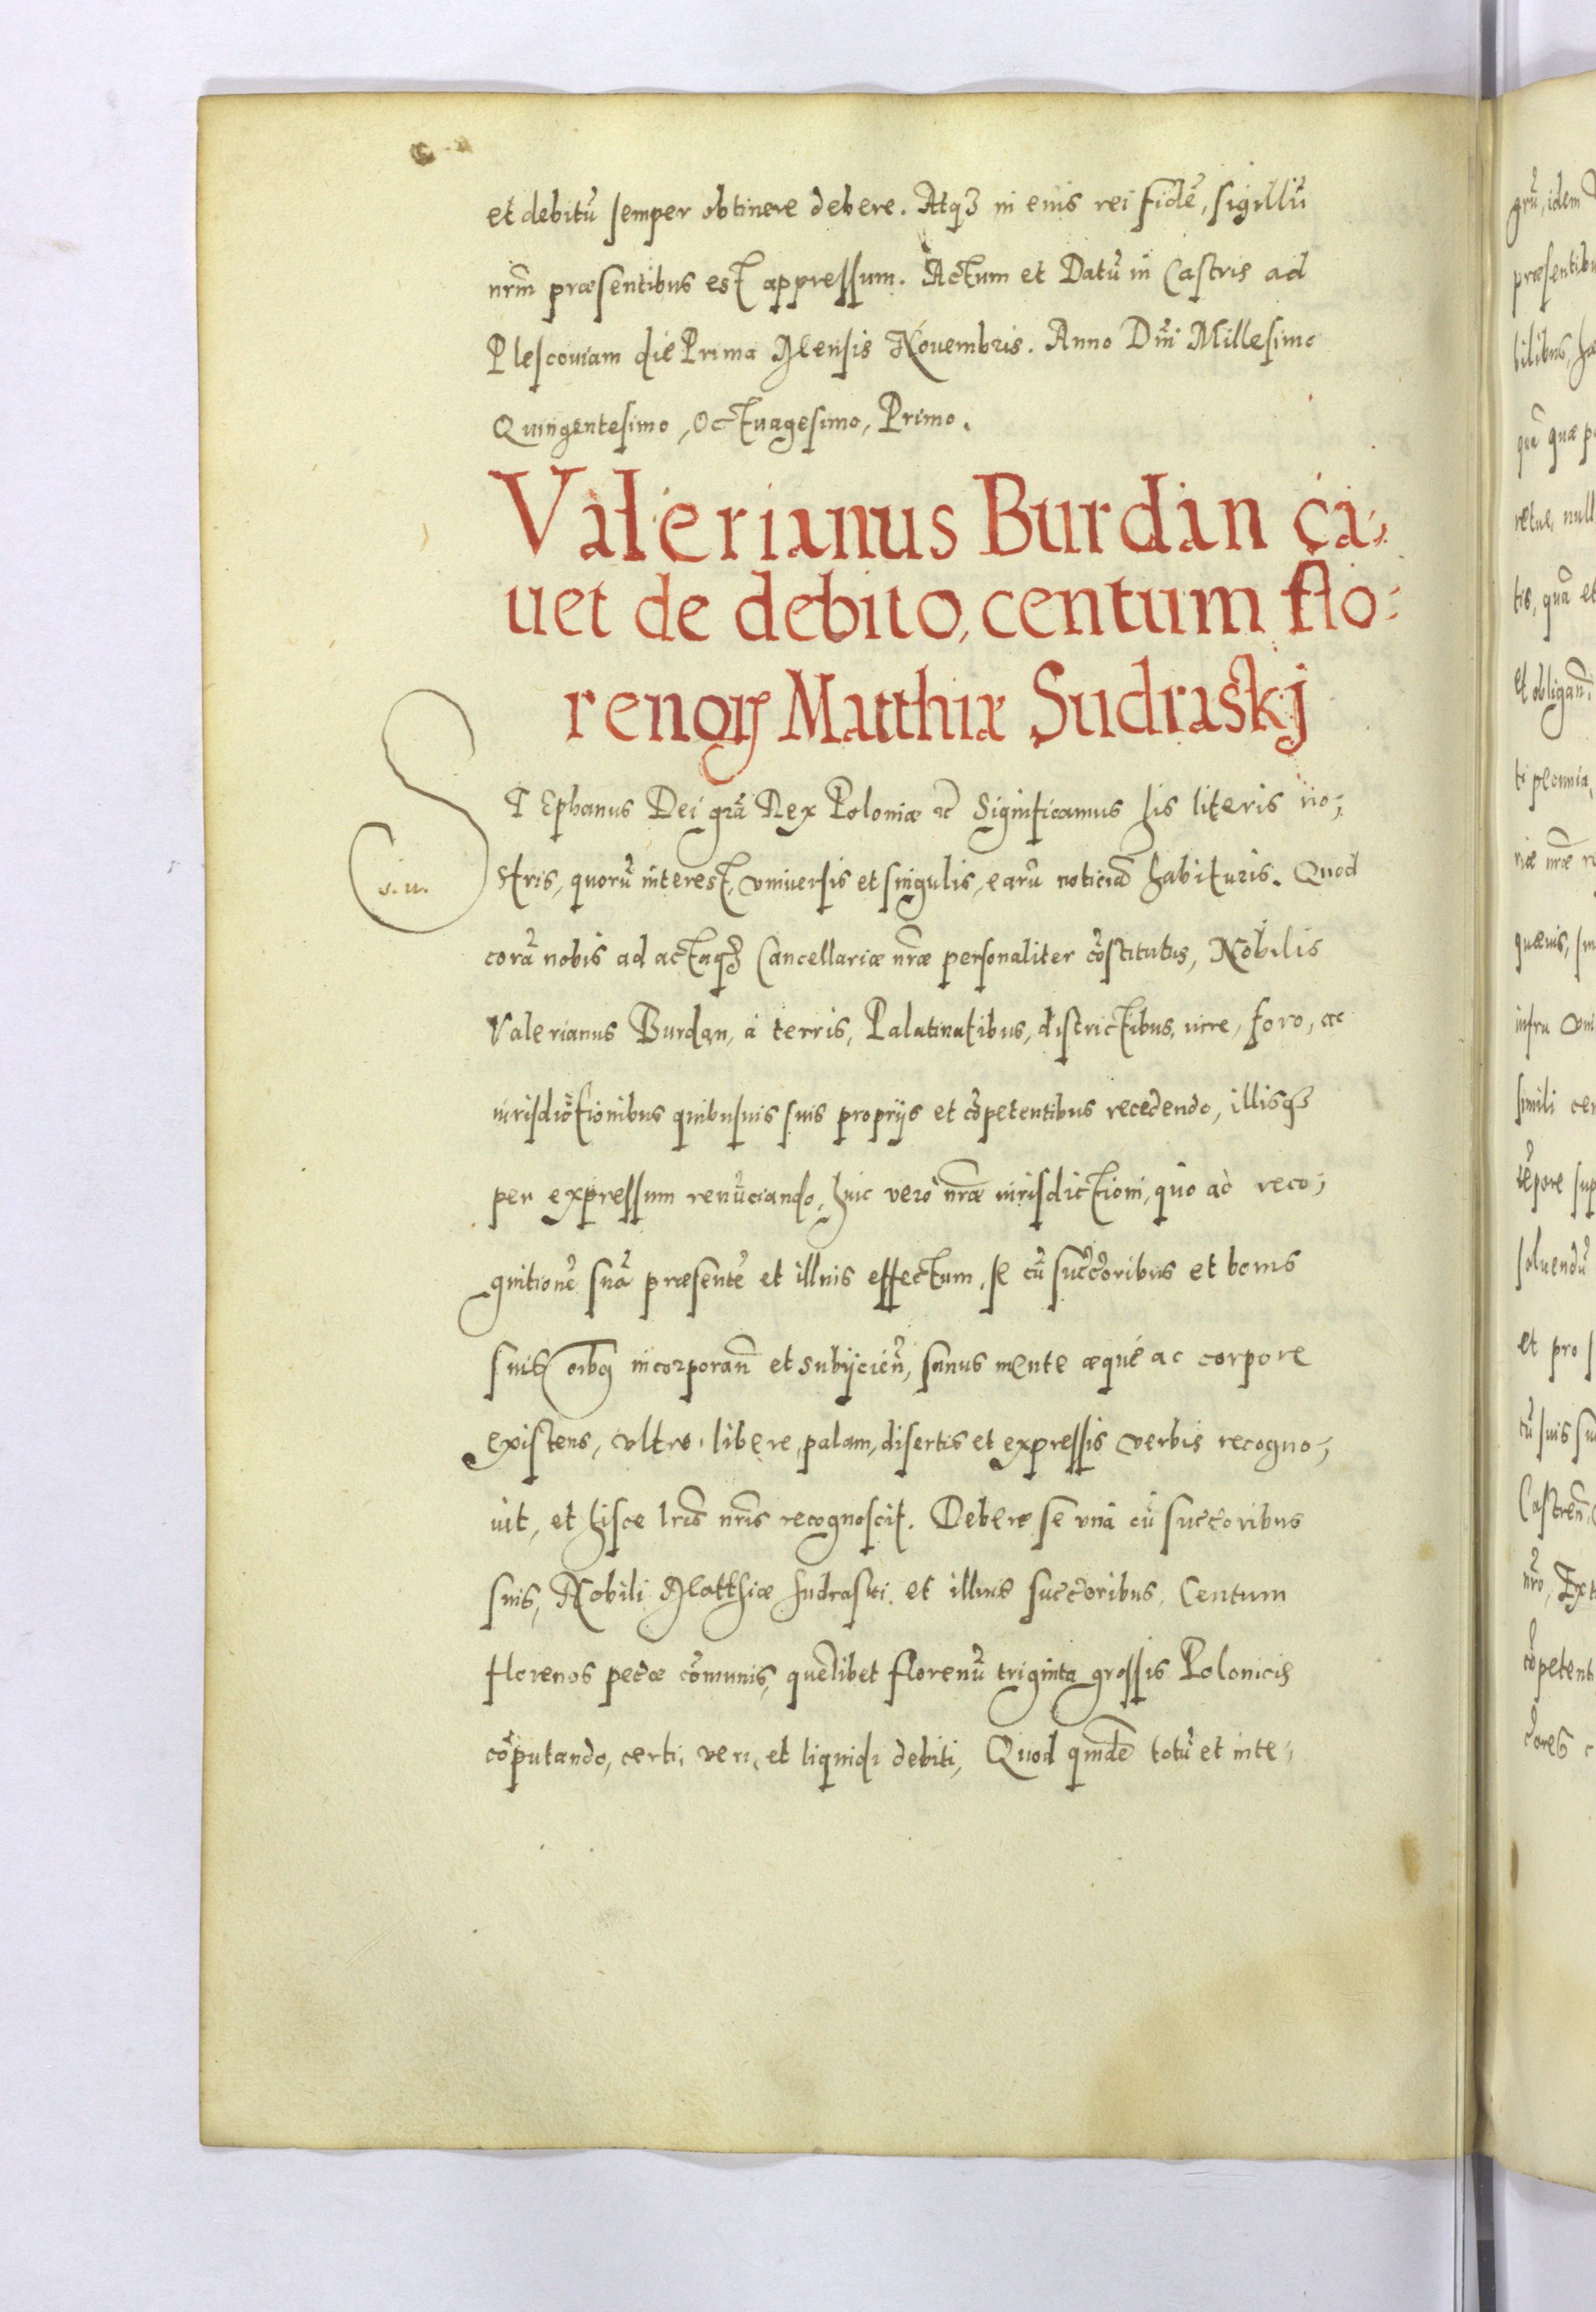 et debitũ semper obtinere debere. Atqȝ in eius rei fidẽ, sigillũ
nr̃m præsentibus est appressum. Actum et Datũ in Castris ad
Plescouiam die Prima Mensis Nouembris. Anno Dñi Millesimo
Quingentesimo, Octuagesimo, Primo.
Valerianus Burdan ca⸗
uet de debito, centum flo⸗
renoꝝ Matthiæ Sudraskj
STEphanus Dei grã Rex Poloniæ ꝛc̃ Significamus his literis no⸗
stris, quorũ interest, vniuersis et singulis, earũ noticiã habituris. Quod
corã nobis ad actaqȝ Cancellariæ nr̃æ personaliter cõstitutus, Nobilis
Valerianus Burdan, à terris, Palatinatibus, districtibus, iure, foro, ac
iurisdictionibus quibusuis suis proprijs et cõpetentibus recedendo, illisqȝ
per expressum renũciando, huic verò nr̃æ iurisdictioni, quo ad reco⸗
gnitionẽ suã præsentẽ et illius effectum, se cũ succ̃oribus et bonis
suis oĩbꝯ incorporañ et subijcieñ, sanus mente æquè ac corpore
existens, vltro, libere, palam, disertis et expressis verbis recogno⸗
uit, et hisce lr̃is nr̃is recognoscit. Debere se vnà cũ succ̃oribus
suis, Nobili Matthiæ Sudraski et illius succ̃oribus, Centum
florenos pec̃æ cõmunis, quẽlibet florenũ triginta grossis Polonicis
cõputando, certi, veri, et liquidi debiti, Quod quidẽ totũ et inte⸗
s. u.